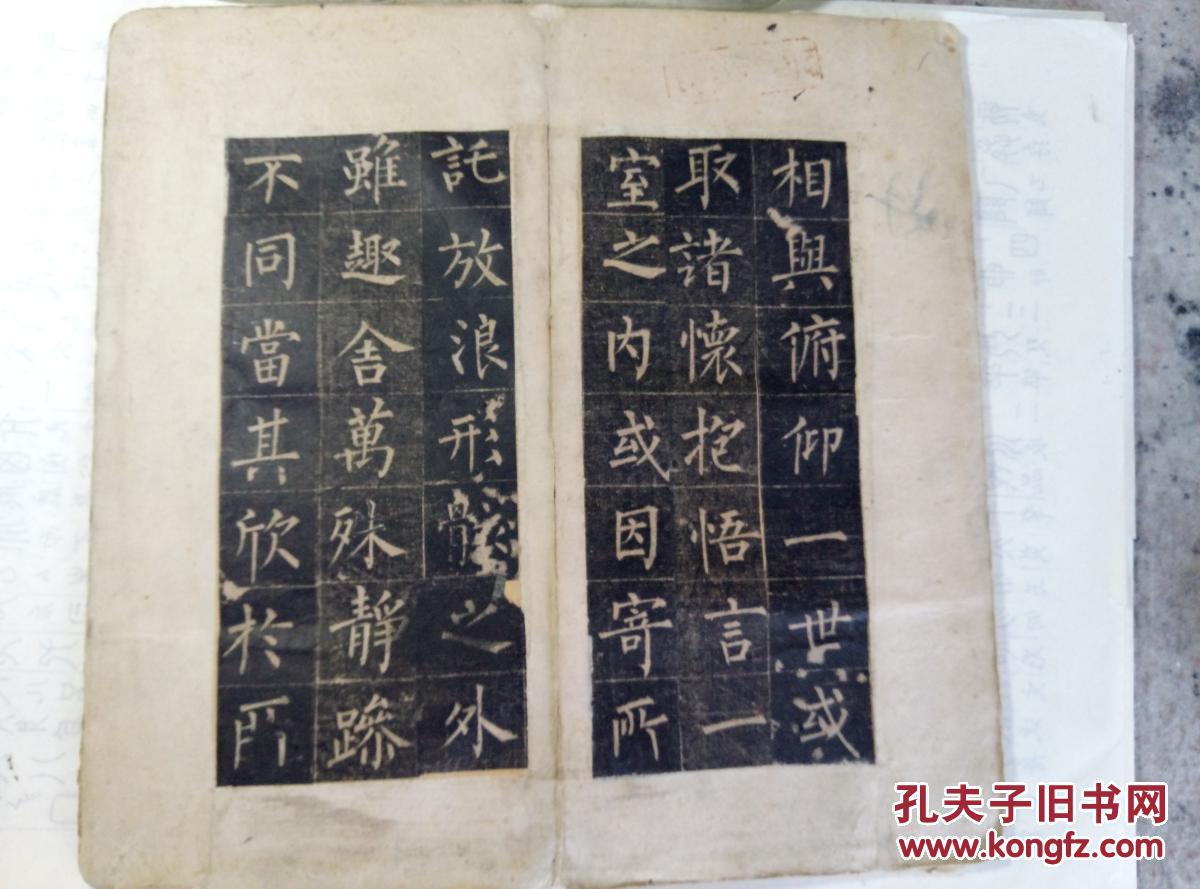 相與俯仰一世或
取諸懷抱悟言一
室之内或因寄所
託放浪形骸之外
雖趣舍萬殊靜躁
不同當其欣於所
孔夫子旧书网
www.kongfz.com